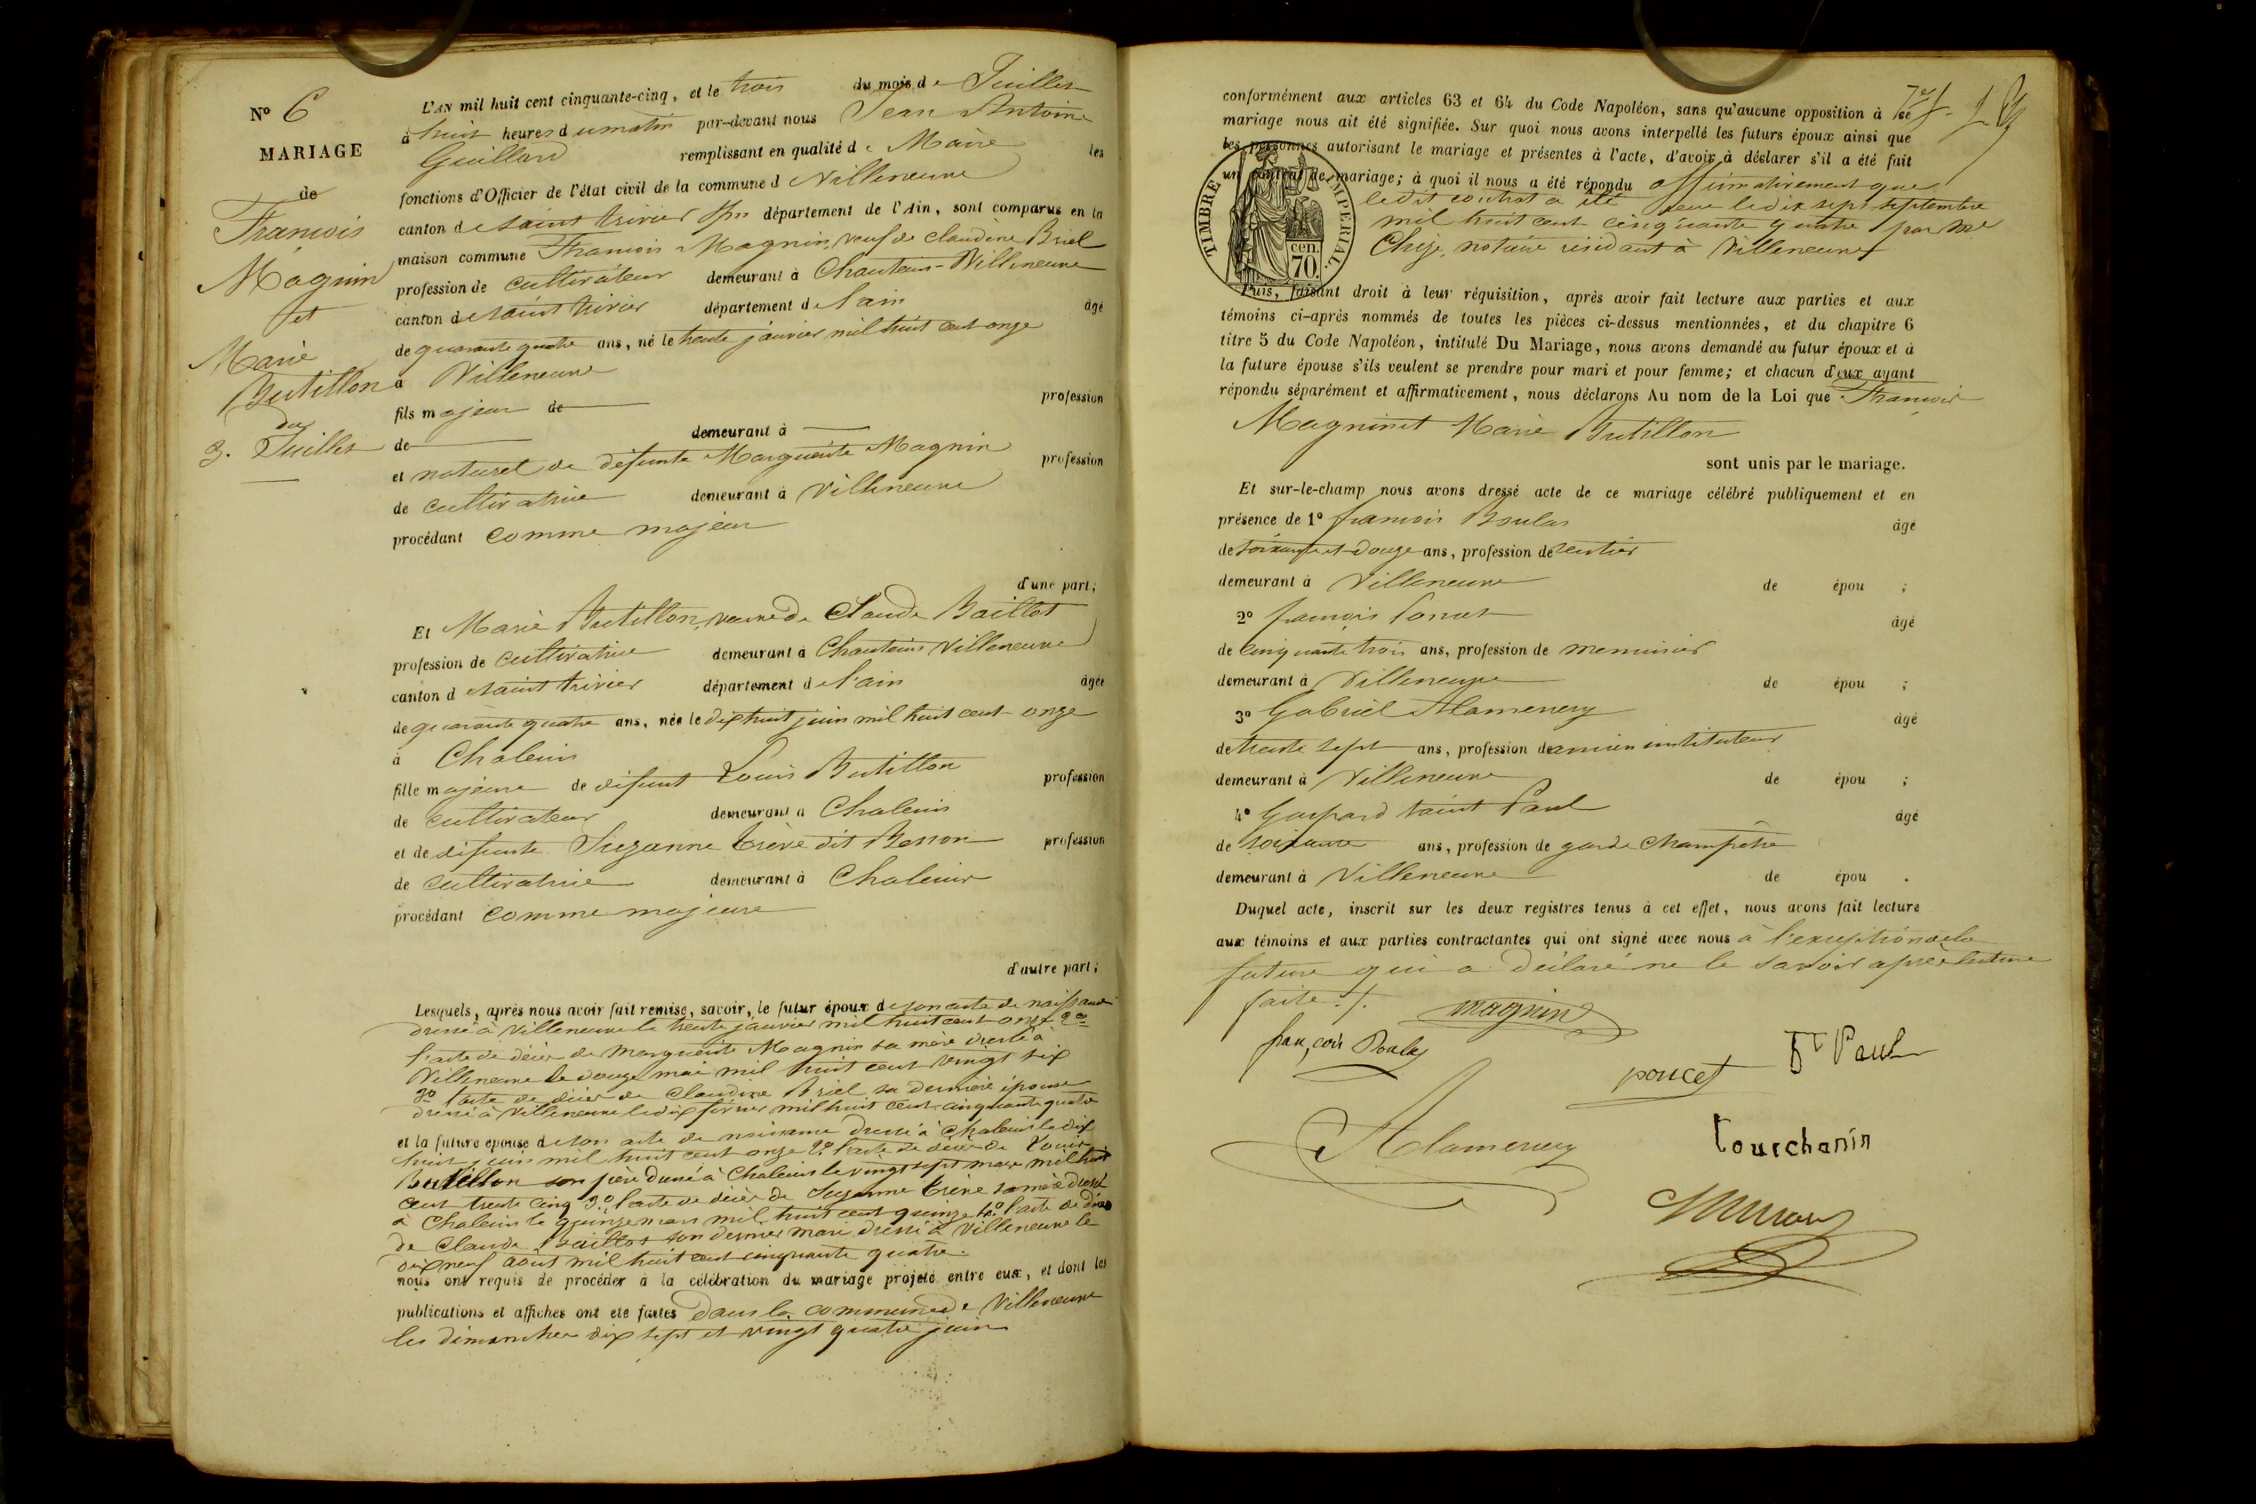 N° 6
MARIAGE
de
François
Magnin
et
Marie
Butillon
du
3. Juillet
L'AN mil huit cent cinquante-cinq, et le trois du mois de Juillet
à huit heures du matin par-devant nous Jean Antoine
Guillard remplissant en qualité de Maire les
fonctions d'Officier de l'état civil de la commune d Villeneuve
canton de saint trivier département de l'Ain, sont comparus en la
maison commune François Magnin, veuf de claudine Briel
profession de cultivateur demeurant à Chanteins-Villeneuve
canton de saint trivier département de l'ain âgé
de quarante quatre ans, né le trente janvier mil huit cent onze
à Villeneuve
fils majeur de profession
de demeurant à
et naturel de défunte Marguerite Magnin profession
de cultivatrice demeurant à Villeneuve
procédant comme majeur
d'une part;
Et Marie Butillon, veuve de Claude Baillot
profession de cultivatrice demeurant à Chanteins Villeneuve
canton de saint trivier département de l'ain âgée
de quarante quatre ans, née le dix huit juin mil huit cent onze
à Chaleins
fille majeure de défunt Louis Butillon profession
de cultivateur demeurant à Chaleins
et de défunte Suzanne Trève dit Besson profession
de cultivatrice demeurant à Chaleins
procédant comme majeure
d'autre part;
Lesquels, après nous avoir fait remise, savoir, le futur époux de son acte de naissance
dressé à Villeneuve le trente janvier mil huit cent onze 2°
l'acte de décès de Marguerite Magnin sa mère dressé à
Villeneuve le douze mai mil huit cent vingt six
3° l'acte de décès de Claudine Briel sa dernière épouse
dressé à Villeneuve le dix février mil huit cent cinquante quatre
et la future épouse de son acte de naissance dressé à Chaleins le dix
huit juin mil huit cent onze 2° l'acte de décès de Louis
Butillon son père dressé à Chaleins le vingt sept mars mil huit
cent trente cinq 3° l'acte de décès de Suzanne Trève sa mère dressé
à Chaleins le quinze mars mil huit cent quinze 4° l'acte de décès
de Claude Baillot son dernier mari dressé à Villeneuve le
dix neuf août mil huit cent cinquante quatre
nous ont requis de procéder à la célébration du mariage projeté entre eux, et dont les
publications et affiches ont été faites dans la commune de Villeneuve
les dimanches dix sept et vingt quatre juin
conformément aux articles 63 et 64 du Code Napoléon, sans qu'aucune opposition à ce
mariage nous ait été signifiée. Sur quoi nous avons interpellé les futurs époux ainsi que
les personnes autorisant le mariage et présentes à l'acte, d'avoir à déclarer s'il a été fait
un contrat de mariage; à quoi il nous a été répondu affirmativement que
ledit contrat a été reçu le dix sept septembre
mil huit cent cinquante quatre par Me
Chize, notaire résidant à Villeneuve
TIMBRE IMPERIAL.
70 cen.
Puis, faisant droit à leur réquisition, après avoir fait lecture aux parties et aux
témoins ci-après nommés de toutes les pièces ci-dessus mentionnées, et du chapitre 6
titre 5 du Code Napoléon, intitulé Du Mariage, nous avons demandé au futur époux et à
la future épouse s'ils veulent se prendre pour mari et pour femme; et chacun d'eux ayant
répondu séparément et affirmativement, nous déclarons Au nom de la Loi que François
Magnin et Marie Butillon
sont unis par le mariage.
Et sur-le-champ nous avons dressé acte de ce mariage célébré publiquement et en
présence de 1° françois Boulas âgé
de soixante et douze ans, profession de rentier
demeurant à Villeneuve de épou ;
2° françois Poncet âgé
de cinquante trois ans, profession de menuisier
demeurant à Villeneuve de épou ;
3° Gabriel Alamercery âgé
de trente sept ans, profession de ancien instituteur
demeurant à Villeneuve de épou ;
4° Gaspard Saint Paul âgé
de soixante ans, profession de garde champêtre
demeurant à Villeneuve de épou .
Duquel acte, inscrit sur les deux registres tenus à cet effet, nous avons fait lecture
aux témoins et aux parties contractantes qui ont signé avec nous à l'exception de la
future qui a déclaré ne le savoir après lecture
faite ./.
magnin
françois Boulas
poncet
St Paul
Alamercery
tourchanin